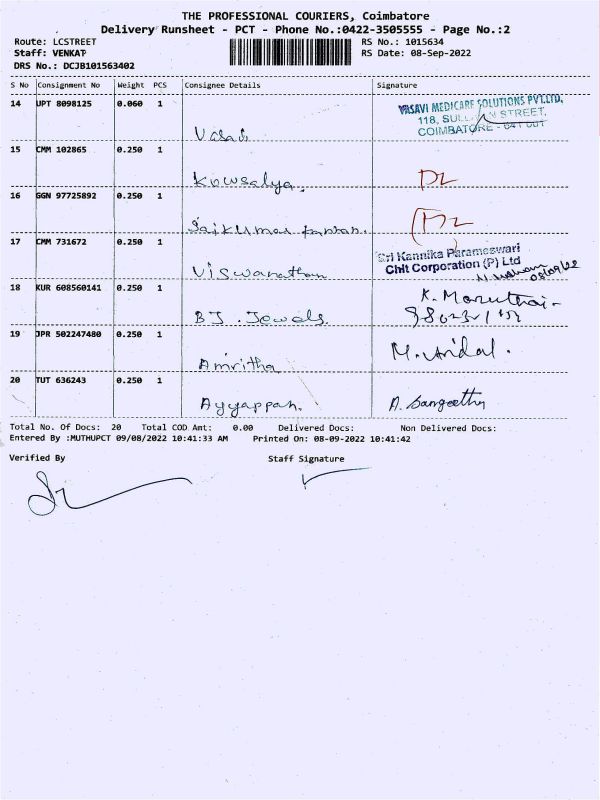 THE PROFESSIONAL COURIERS, Coimbatore
Delivery Runsheet - PCT - Phone No.:0422-3505555 - Page No.:2
Route: LCSTREET RS No.: 1015634
Staff: VENKAT RS Date: 08-Sep-2022
DRS No.: DCJB101563402
S No Consignment No Weight PCS Consignee Details Signature
14 UPT 8098125 0.060 1
VASAVI MEDICARE SOLUTIONS PVT.LTD,
118, STREET,
COIMBATORE - 641 001
15 CMM 102865 0.250 1
Kowsalya.
16 GGN 97725892 0.250 1
Saikumar
17 CMM 731672 0.250 1
Sri Kannika Parameswari
Chit Corporation (P) Ltd
Viswanathan
18 KUR 608560141 0.250 1
K. Maruthai
BJ. Jewels.
19 JPR 502247480 0.250 1
Amritha
20 TUT 636243 0.250 1
Ayyappan. A. Sangeetha
Total No. Of Docs: 20 Total COD Amt: 0.00 Delivered Docs: Non Delivered Docs:
Entered By :MUTHUPCT 09/08/2022 10:41:33 AM Printed On: 08-09-2022 10:41:42
Verified By Staff Signature